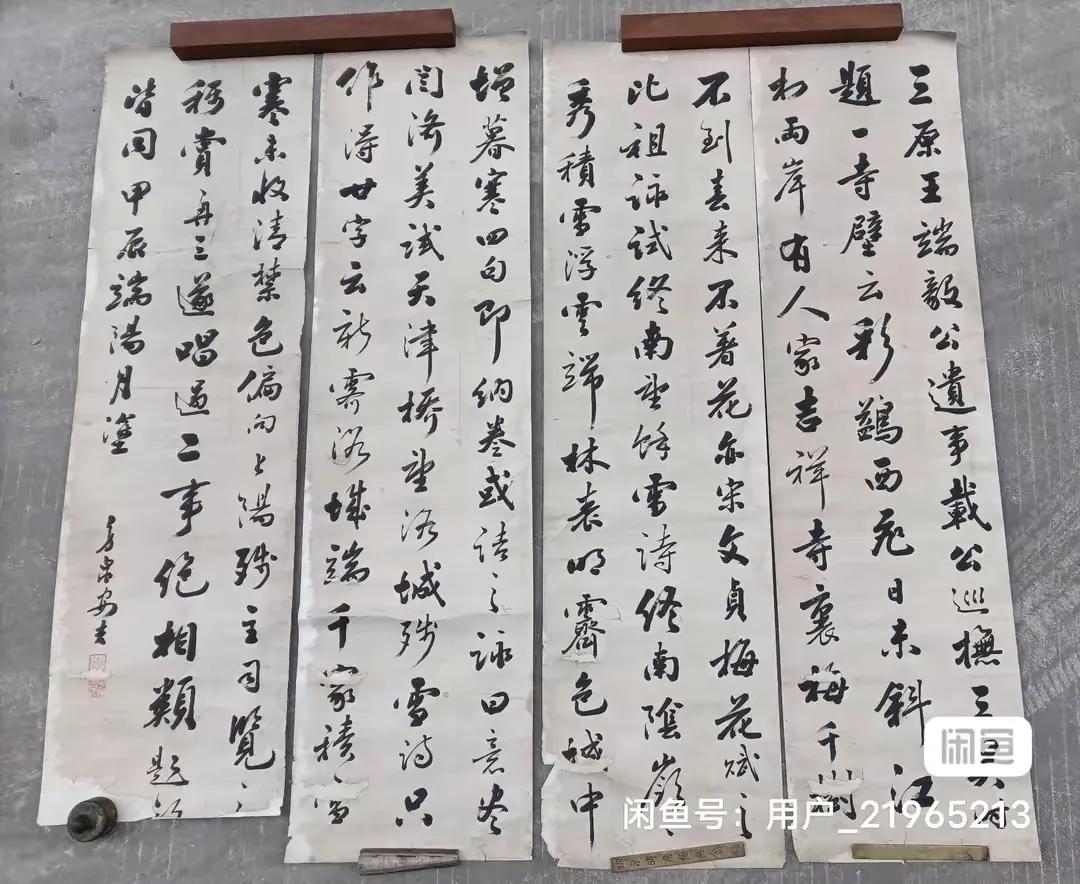 三原王端毅公遺事載公巡撫三吳時
題一寺壁云彩鷁西飛日未斜江
村兩岸有人家吉祥寺裏梅千樹
不到春来不著花亦宋文貞梅花賦之
比祖詠試終南望餘雪詩終南陰嶺
秀積雪浮雲端林表明霽色城中
增暮寒四句即納卷或詰之詠曰意尽
閻濟美試天津橋望洛城殘雪詩只
作得廿字云新霽洛城端千家積雪
寒未收清禁色偏向上陽殘主司覽之
稱賞再三遂唱過二事絕相類題
皆同甲辰端陽月
闲鱼
闲鱼号：用户_21965213